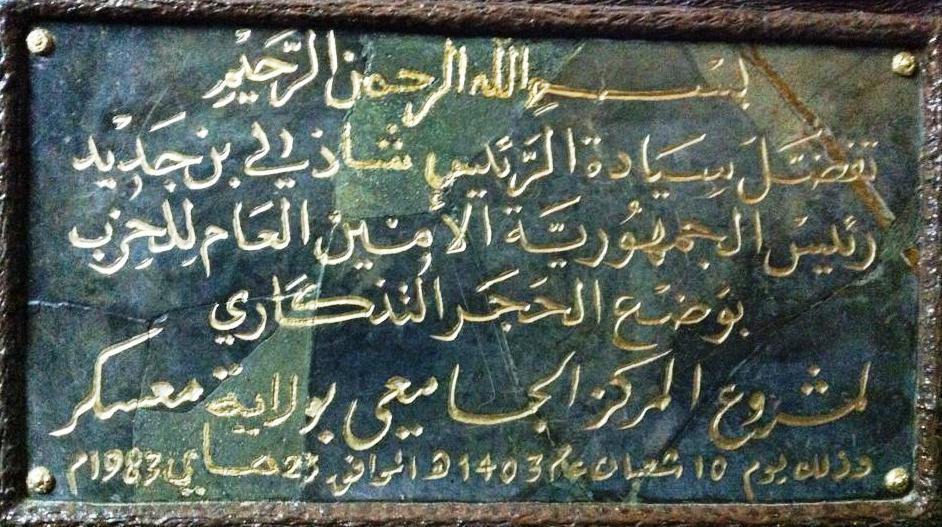 بِسْمِ الله الرحمن الرَّحِيْمِ
تفضَّلَ سِيَادة الرَّئيس شاذلي بن جَدِيْد
رئيسُ الجمهُوريَّة الأمِيْنُ العَام لِلحِزب
بوَضْع الحَجَر التذكَاري
لمشروع المركز الجامعي بولاية معسكر
وذلك يوم 10 شعبان عام 1403 ه الموافق 23 ماي 1983م